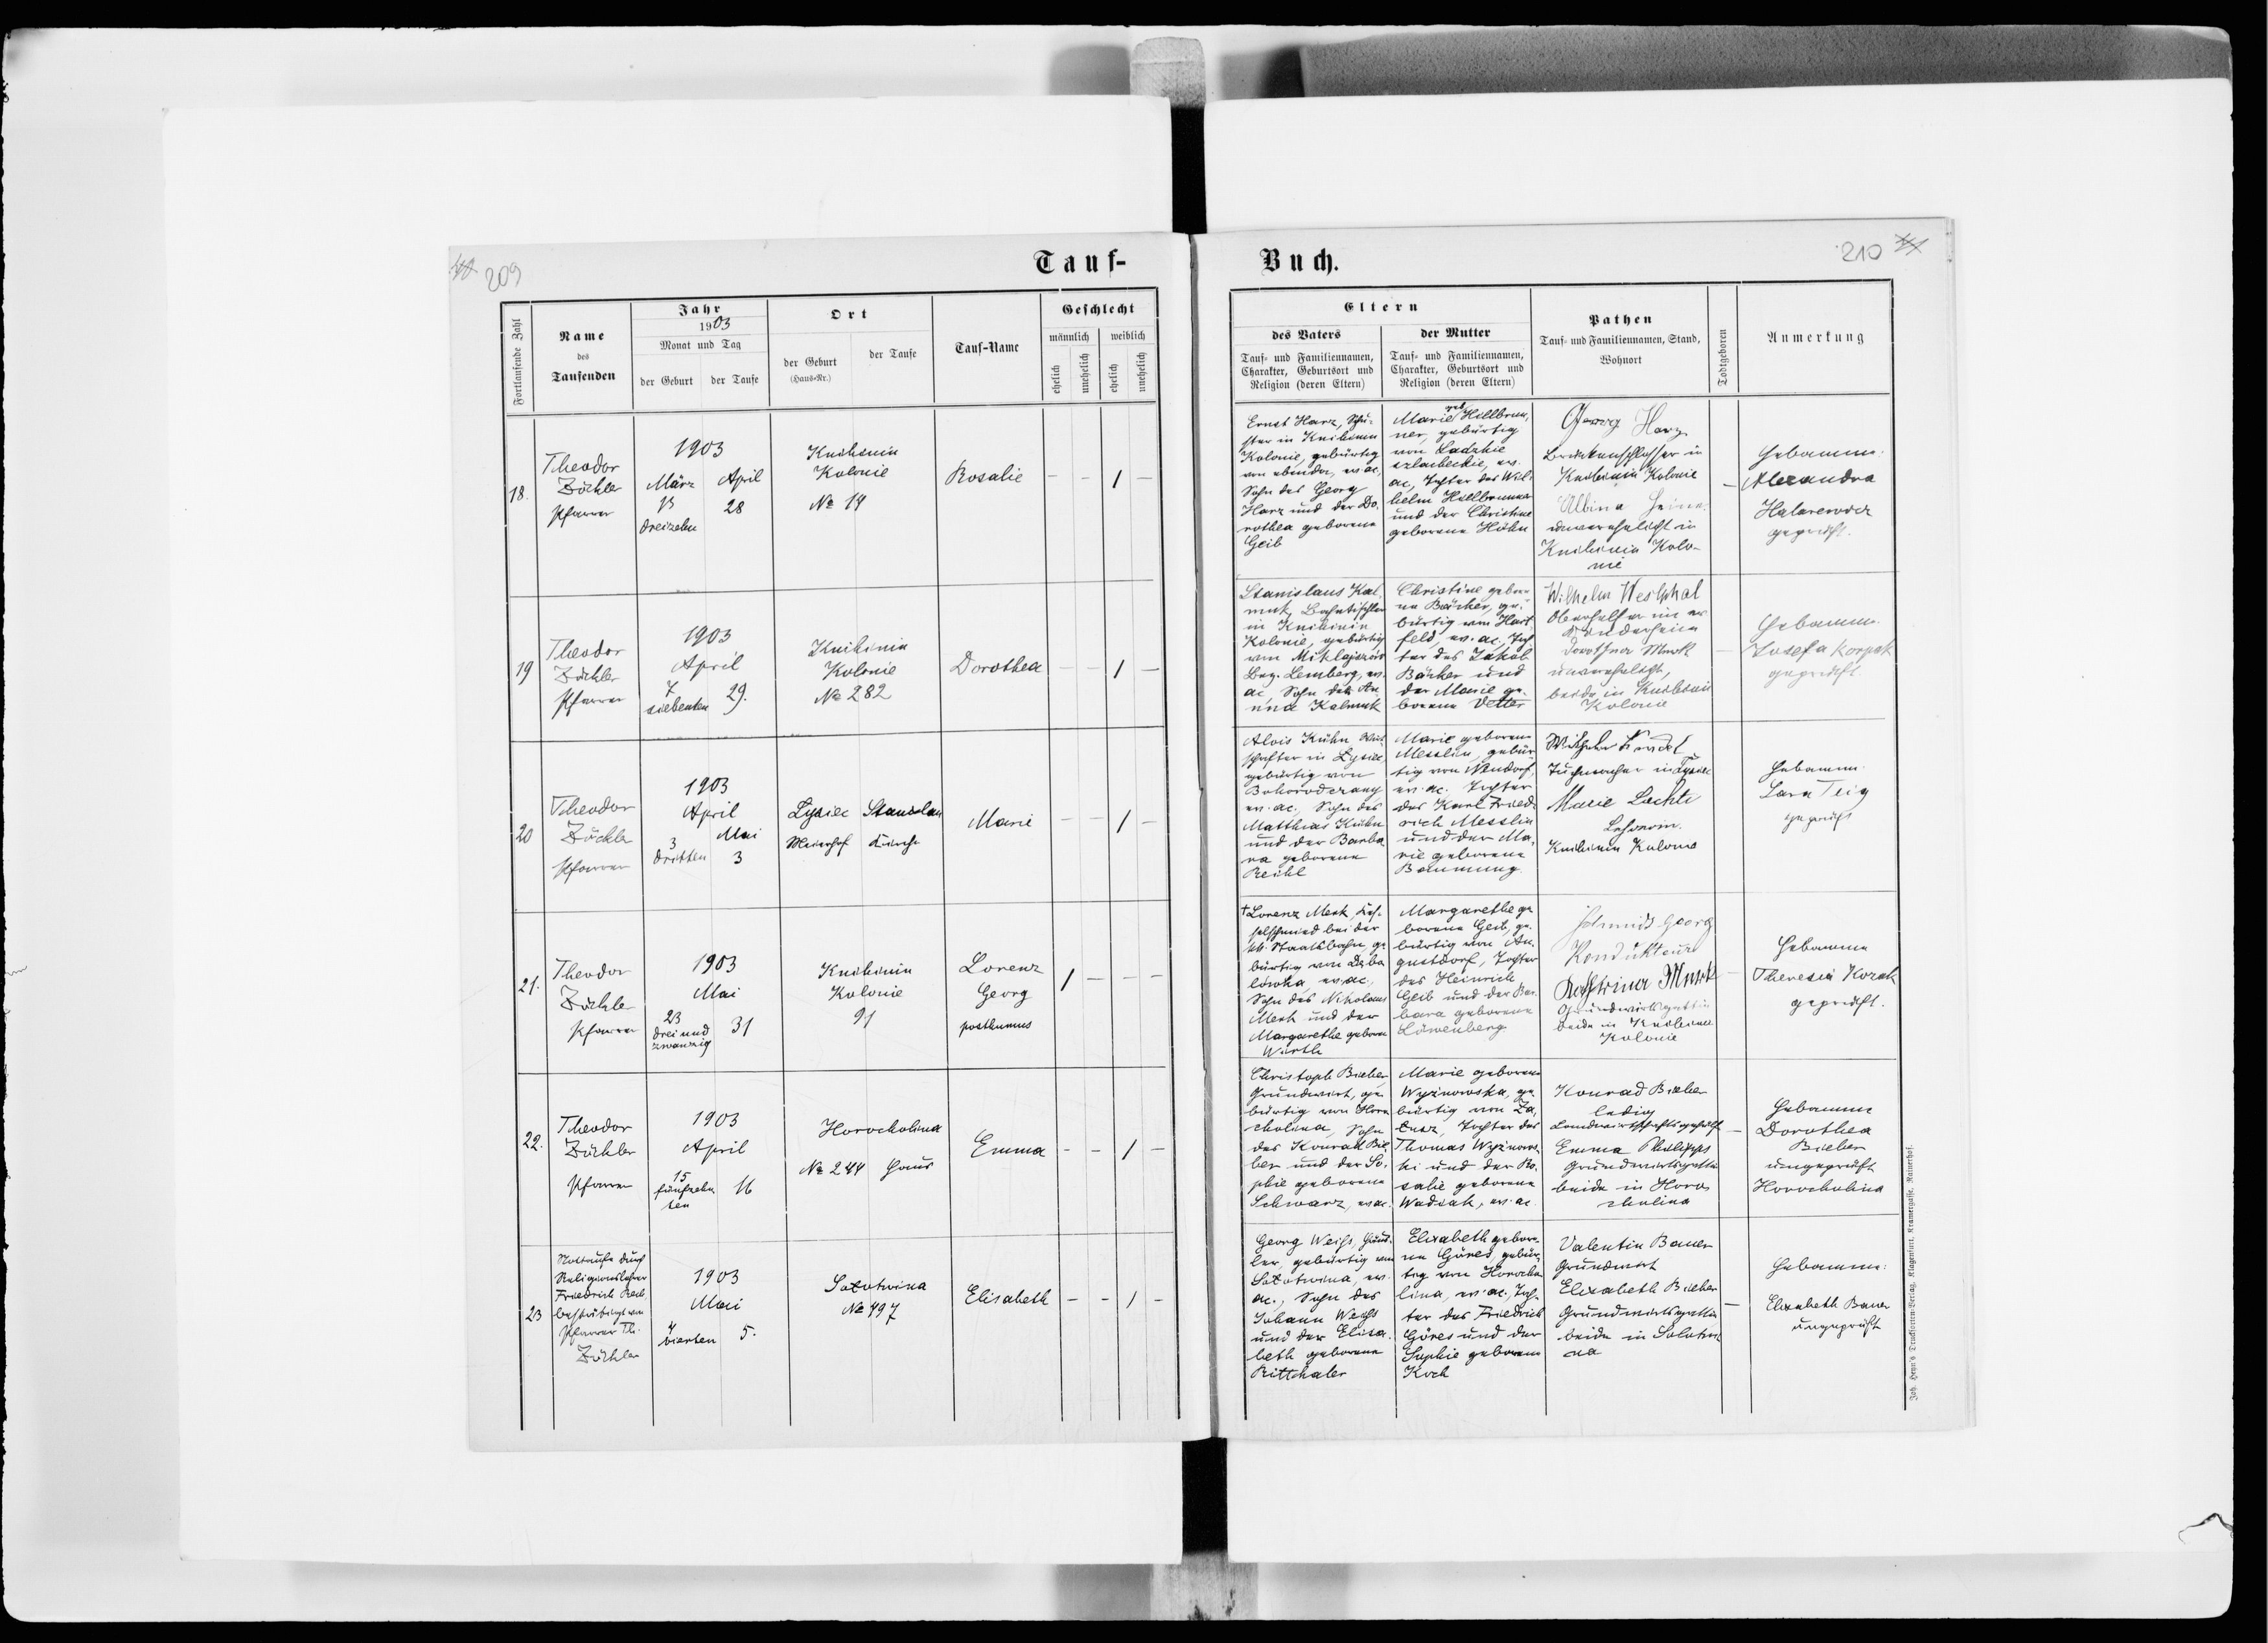 Tauf-
Buch.
209
210
Fortlaufende Zahl
Name
des
Taufenden
Jahr
1903
Monat und Tag
der Geburt
der Taufe
Ort
der Geburt
(Haus-Nr.)
der Taufe
Tauf-Name
Geschlecht
männlich
weiblich
ehelich
unehelich
ehelich
unehelich
Eltern
des Vaters
Tauf- und Familiennamen,
Charakter, Geburtsort und
Religion (deren Eltern)
der Mutter
Tauf- und Familiennamen,
Charakter, Geburtsort und
Religion (deren Eltern)
Pathen
Tauf- und Familiennamen, Stand,
Wohnort
Todtgeboren
Anmerkung
18.
Theodor
Zöckler
Pfarrer
1903
März
13
dreizehn
April
28
Knihinin
Kolonie
No 14
Rosalie
- - / -
Ernst Harz, Schu-
ster in Knihinin
Kolonie, gebürtig
von ebenda, ev. ac.
Sohn des Georg
Harz und der Do-
rothea geborene
Geib
Marie geb. Hillbrun-
ner, gebürtig
von Ladzkie
szlacheckie, ev.
ac, Tochter des Wil-
helm Hillbrunner
und der Christine
geborene Höhn
Georg Harz
in
Knihinin Kolonie
Albina
unverehelicht in
Knihinin Kolo-
nie
-
Hebamme:
Alexandra
geprüft.
19
Theodor
Zöckler
Pfarrer
1903
April
7
siebenten
29.
Knihinin
Kolonie
No 282
Dorothea
- - / -
Stanislaus Kal-
muk, Bahntischler
in Knihinin
Kolonie, gebürtig
von
Bez. Lemberg, ev.
ac, Sohn der An-
na Kalmuk
Christine gebore-
ne Bäcker, ge-
bürtig von Hart-
feld, ev. ac, Toch-
ter des Jakob
Bäcker und
der Marie ge-
borene Vetter
Wilhelm Westphal
Dorothea
unverehelicht,
beide in Knihinin
Kolonie
-
Hebamme
Josefa Korpak
geprüft.
20
Theodor
Zöckler
Pfarrer
1903
April
3
dritten
Mai
3
Łysiec
Meierhof
Stanislau
Kirche
Marie
- - / -
Alois Kühn, Wirt-
schafter in Łysiec,
gebürtig von
Bohorodczany
ev. ac., Sohn des
Matthias Kühn
und der Barba-
ra geborene
Reihl
Marie geborene
Messlin, gebür-
tig von Neudorf,
ev. ac. Tochter
des Karl Fried-
rich Messlin
und der Ma-
rie geborene
Baumung.
Wilhelm
Tuchmacher in Łysiec
Marie
Lehrerin.
Knihinin Kolonie
Hebamme
geprüft
21.
Theodor
Zöckler
Pfarrer
1903
Mai
23
drei und
zwanzig
31
Knihinin
Kolonie
91
Lorenz
Georg
posthumus
/ - - -
† Lorenz Merk, Kes-
selschmied bei der
kk. Staatsbahn, ge-
bürtig von
ev. ac.,
Sohn des Nikolaus
Merk und der
Margarethe geborene
Wirth
Margarethe ge-
borene Geib, ge-
bürtig von Au-
gustdorf, Tochter
des Heinrich
Geib und der Bar-
bara geborene
Löwenberg
Schmidt Georg
Kondukteur
Grundwirtsgattin
beide in Knihinin
Kolonie
-
Hebamme
Theresia Kozak
geprüft.
22.
Theodor
Zöckler
Pfarrer
1903
April
15
fünfzehn-
ten
16
Horocholina
No 244
Haus
Emma
- - / -
Christoph Bieber,
Grundwirt, ge-
bürtig von Horo-
cholina, Sohn
des Konrad Bie-
ber und der So-
phie geborene
Schwarz, ev. ac.
Marie geborene
Wyżnowska, ge-
bürtig von Za-
łucz, Tochter des
Thomas Wyżnows-
ki und der Ro-
salie geborene
Wadiak, ev. ac.
Konrad Bieber
ledig
Landwirtschaftsgehilfe
Emma Philipps
Grundwirtsgattin
beide in Horo-
cholina
-
Hebamme
Dorothea
Bieber
ungeprüft
Horocholina
23
Nottaufe durch
Religionslehrer
Friedrich Rech
bestätigt von
Pfarrer Th.
Zöckler
1903
Mai
4
vierten
5.
Sołotwina
No 497
Elisabeth
- - / -
Georg Weiss, Händ-
ler, gebürtig von
Sołotwina, ev.
ac., Sohn des
Johann Weiss
und der Elisa-
beth geborene
Rittchaler
Elisabeth gebore-
ne Göres, gebür-
tig von Horocho-
lina, ev. ac., Toch-
ter des Friedrich
Göres und der
Sophie geborene
Koch
Valentin Bauer
Grundwirt
Elisabeth Bieber
Grundwirtsgattin
beide in Solotwi-
na
-
Hebamme:
Elisabeth Bauer
ungeprüft
Joh. Heyn's Drucksorten-Verlag, Klagenfurt, Kramergasse, Rainerhof.